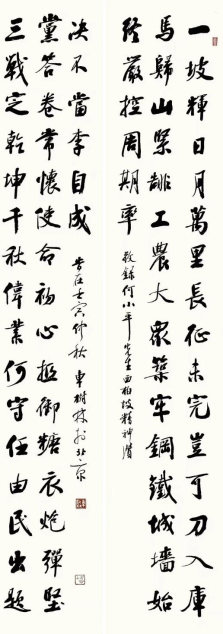 一坡輝日月萬里長征未完豈可刀入庫
馬歸山緊靠工農大眾築牢鋼鐵城墻始
終嚴控周期率
敬錄何小平先生西柏坡精神
三戰定乾坤千秋偉業何守任由民出題
黨答卷常懷使命初心抵御糖衣炮彈堅
決不當李自成
歲在壬寅仲秋 樹林於北京